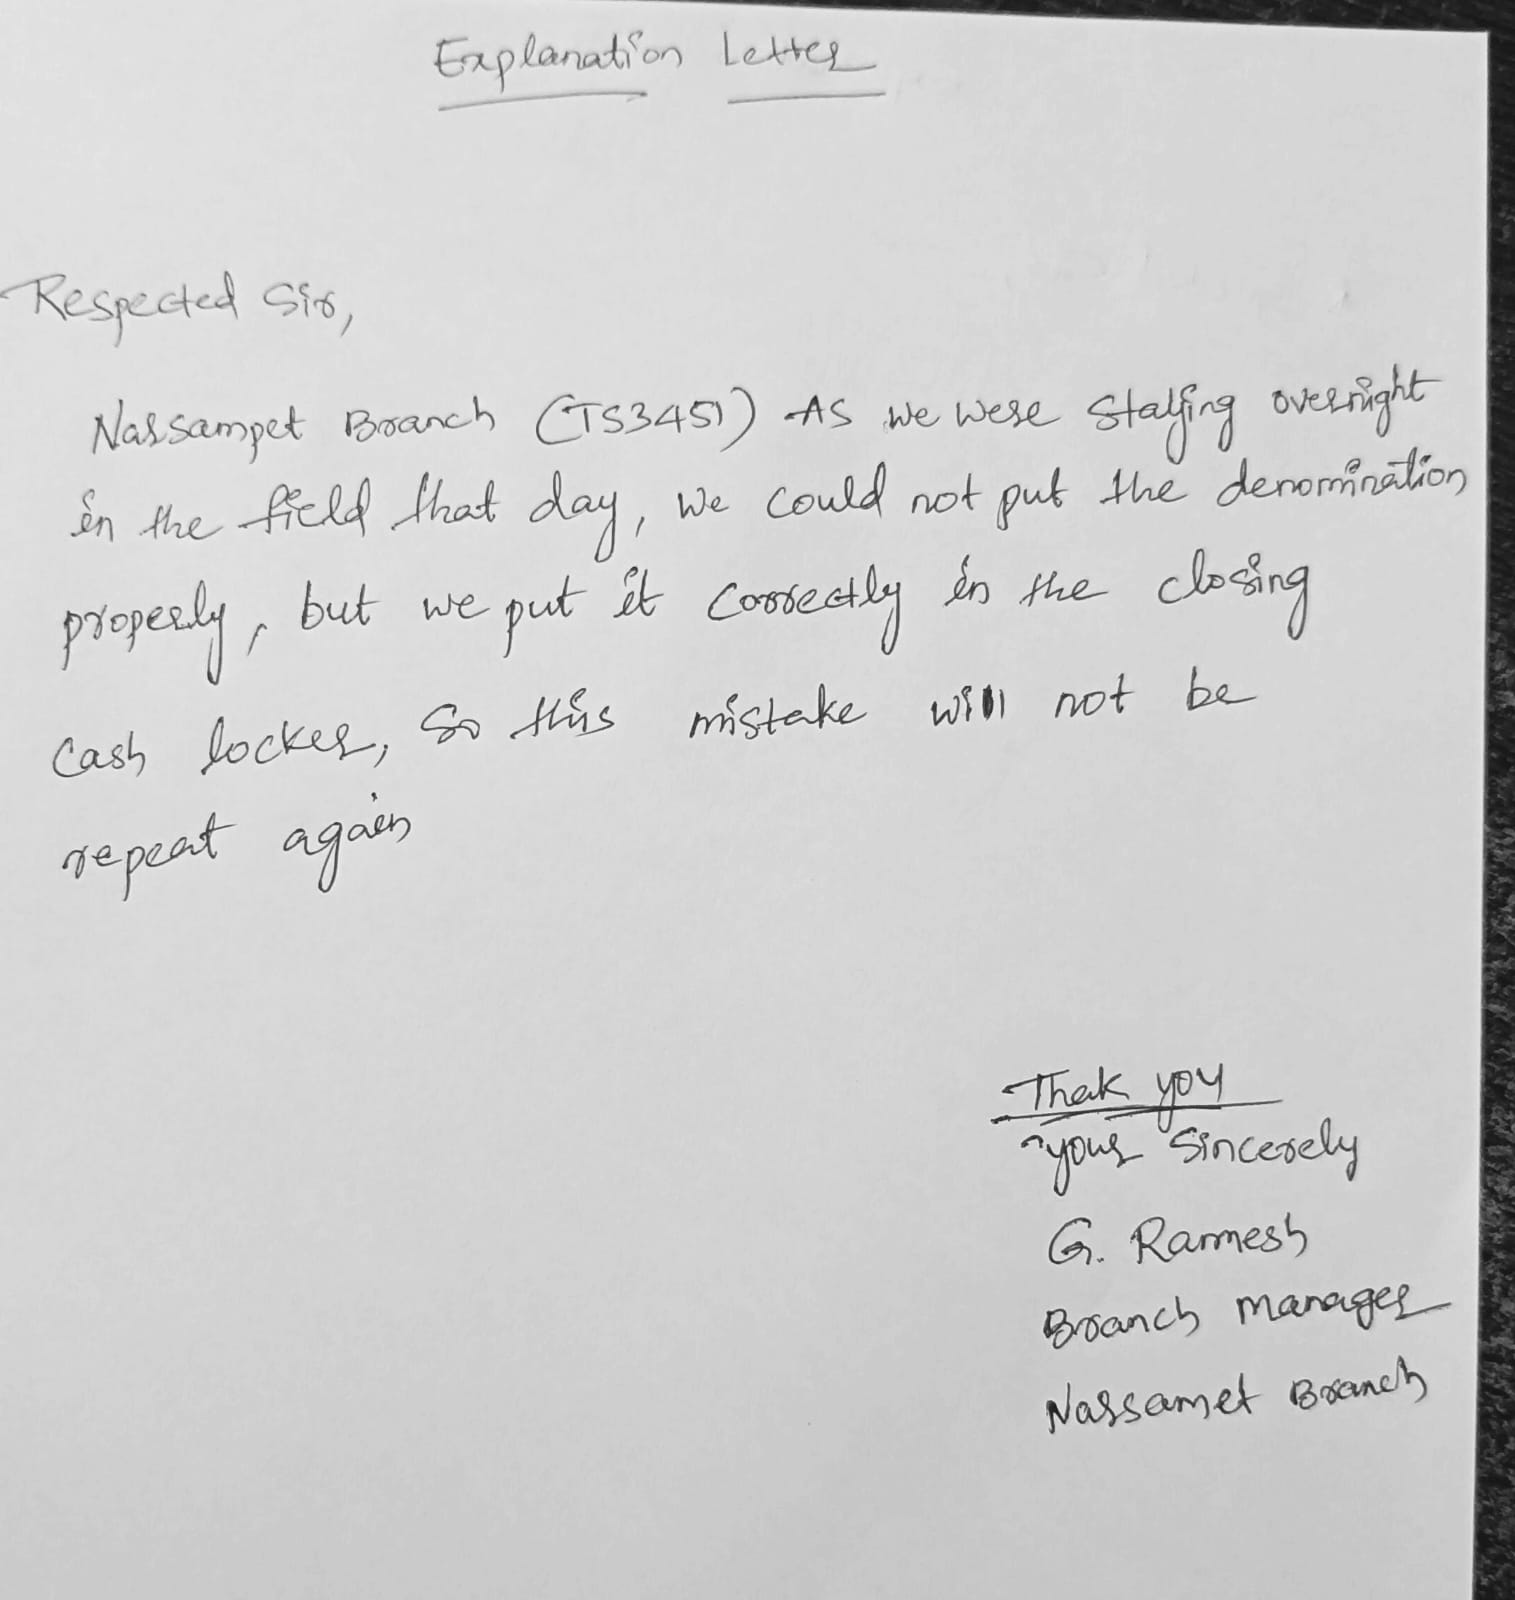 Explanation Letter
Respected Sir,
Narsampet Branch (TS3451) As we were staying overnight
in the field that day, we could not put the denomination
properly, but we put it correctly in the closing
Cash locker, So this mistake will not be
repeat again
Thak you
your Sincerely
G. Ramesh
Branch manager
Narsamet Branch